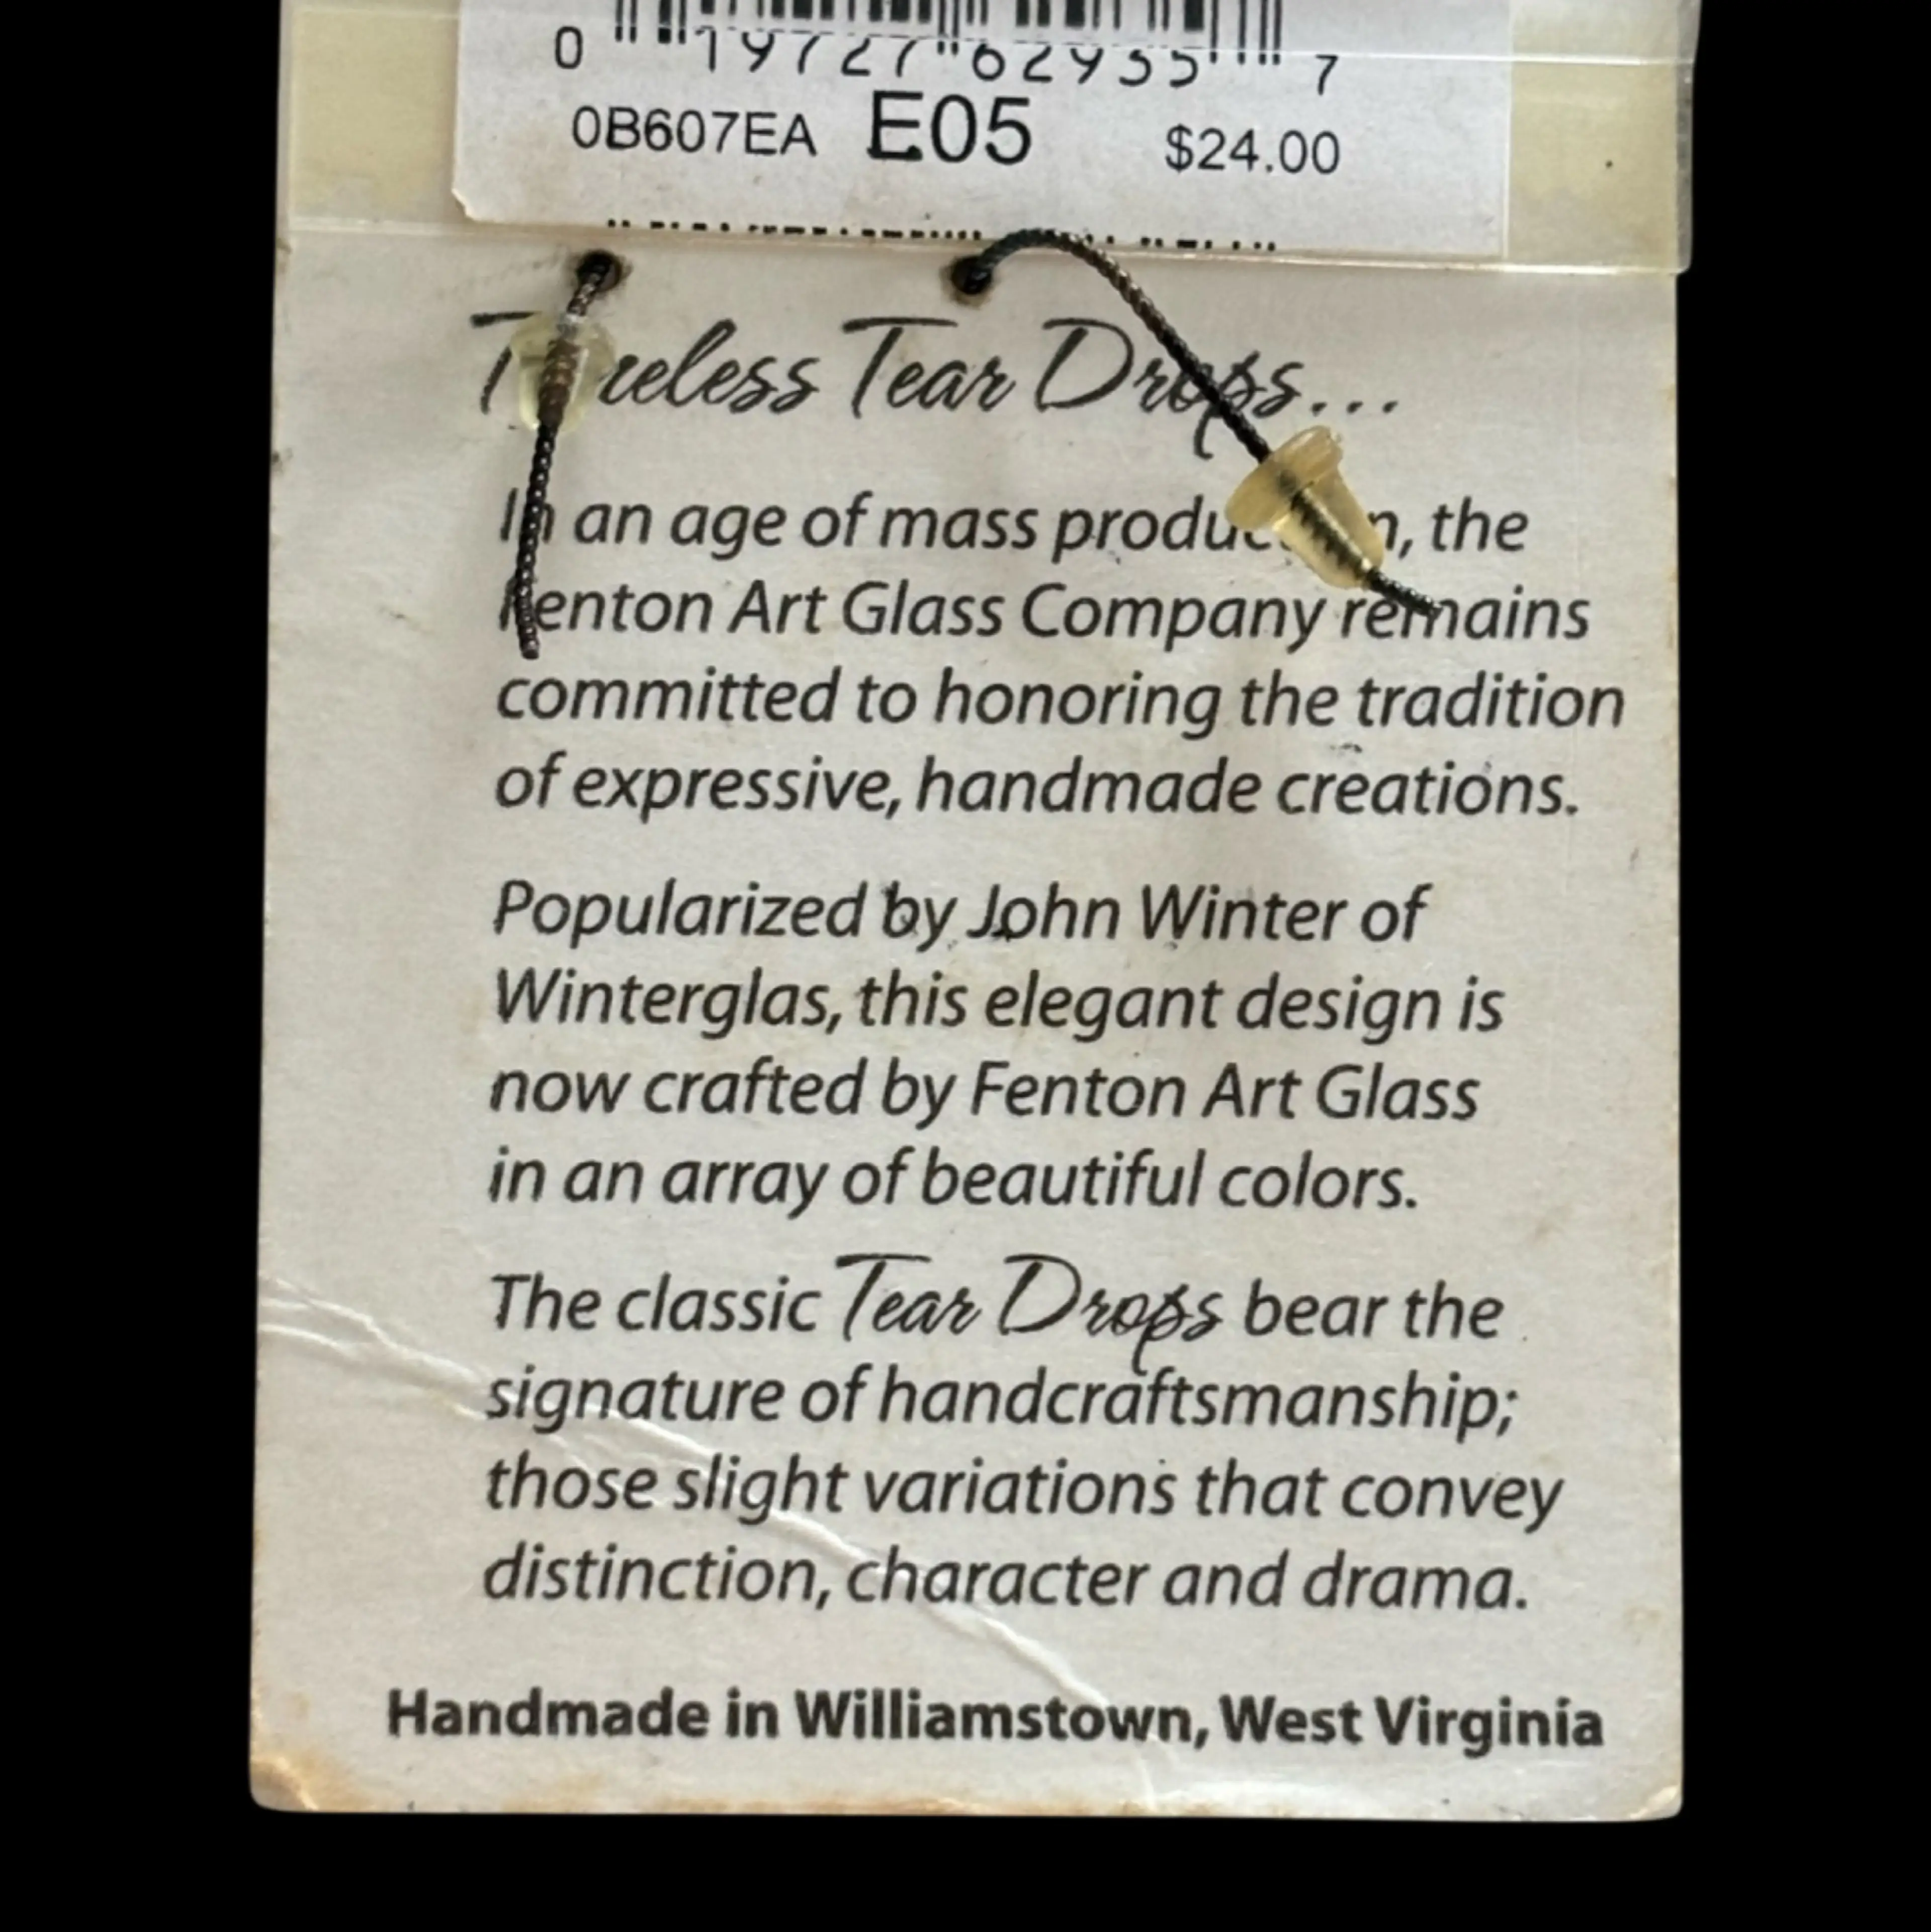 0 19727 62935 7
0B607EA E05 $24.00
Timeless Tear Drops...
In an age of mass production, the
Fenton Art Glass Company remains
committed to honoring the tradition
of expressive, handmade creations.
Popularized by John Winter of
Winterglas, this elegant design is
now crafted by Fenton Art Glass
in an array of beautiful colors.
The classic Tear Drops bear the
signature of handcraftsmanship;
those slight variations that convey
distinction, character and drama.
Handmade in Williamstown, West Virginia